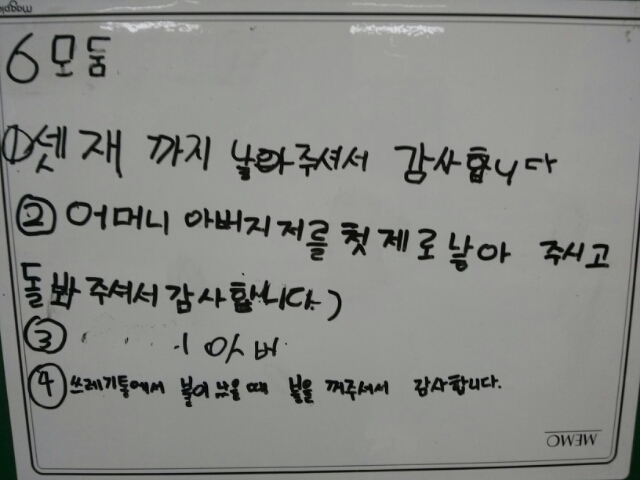 6모둠
①셋재 까지 낳아주셔서 감사합니다
②어머니 아버지 저를 첫제로 낳아 주시고
돌봐주셔서감사합니다.)
③ ㅣ아버
④쓰레기통에서 불이 났을때 불을 꺼주셔서 감사합니다.
MEMO